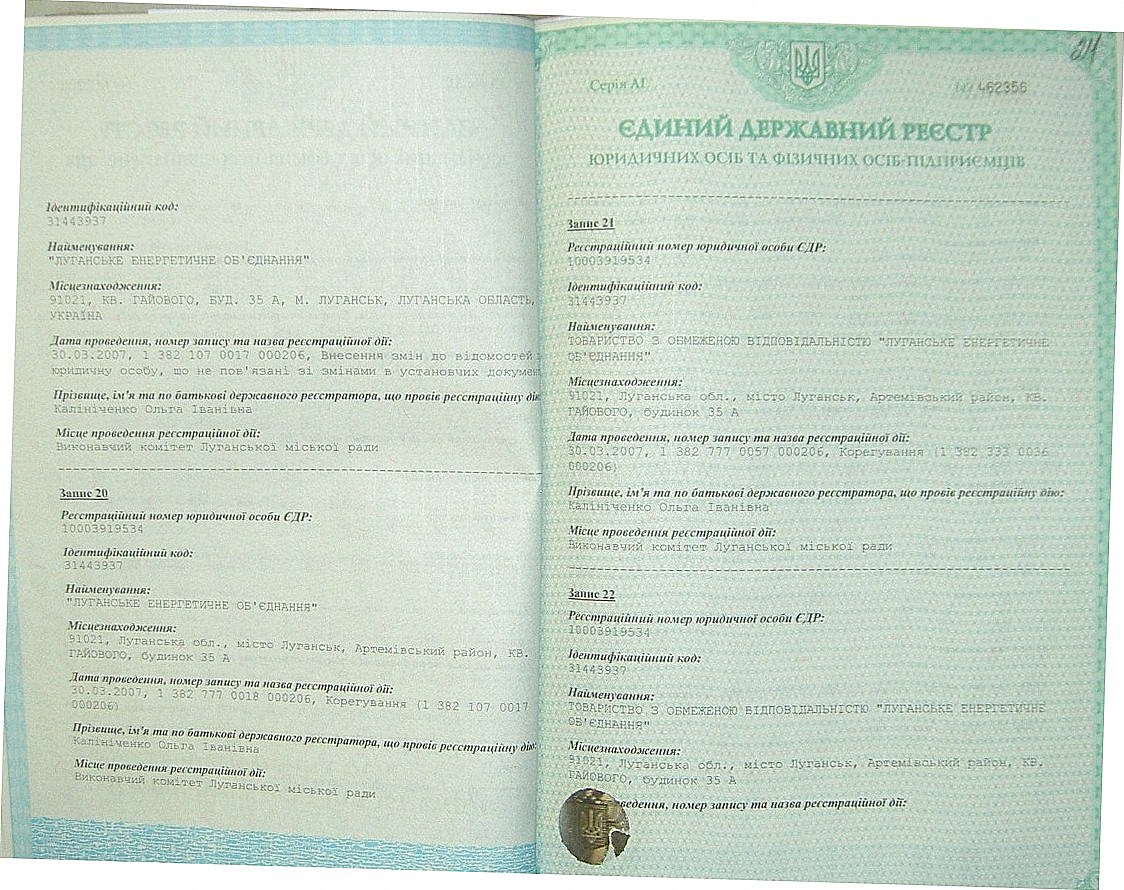 Ідентифікаційний код:
31443937
Найменування:
"ЛУГАНСЬКЕ ЕНЕРГЕТИЧНЕ ОБ'ЄДНАННЯ"
Місцезнаходження:
91021, КВ. ГАЙОВОГО, БУД. 35 А, М. ЛУГАНСЬК, ЛУГАНСЬКА ОБЛАСТЬ,
УКРАЇНА
Дата проведення, номер запису та назва реєстраційної дії:
30.03.2007, 1 382 107 0017 000206, Внесення змін до відомостей
юридичну особу, що не пов'язані зі змінами в установчих докумен
Прізвище, ім'я та по батькові державного реєстратора, що провів реєстраційну дію
Калініченко Ольга Іванівна
Місце проведення реєстраційної дії:
Виконавчий комітет Луганської міської ради
Запис 20
Реєстраційний номер юридичної особи ЄДР:
10003919534
Ідентифікаційний код:
31443937
Найменування:
"ЛУГАНСЬКЕ ЕНЕРГЕТИЧНЕ ОБ'ЄДНАННЯ"
Місцезнаходження:
91021, Луганська обл., місто Луганськ, Артемівський район, КВ.
ГАЙОВОГО, будинок 35 А
Дата проведення, номер запису та назва реєстраційної дії:
30.03.2007, 1 382 777 0018 000206, Корегування (1 382 107 0017
000206)
Прізвище, ім'я та по батькові державного реєстратора, що провів реєстраційну дію:
Калініченко Ольга Іванівна
Місце проведення реєстраційної дії:
Виконавчий комітет Луганської міської ради
24
Серія АГ № 462356
ЄДИНИЙ ДЕРЖАВНИЙ РЕЄСТР
ЮРИДИЧНИХ ОСІБ ТА ФІЗИЧНИХ ОСІБ-ПІДПРИЄМЦІВ
Запис 21
Реєстраційний номер юридичної особи ЄДР:
10003919534
Ідентифікаційний код:
31443937
Найменування:
ТОВАРИСТВО З ОБМЕЖЕНОЮ ВІДПОВІДАЛЬНІСТЮ "ЛУГАНСЬКЕ ЕНЕРГЕТИЧНЕ
ОБ'ЄДНАННЯ"
Місцезнаходження:
91021, Луганська обл., місто Луганськ, Артемівський район, КВ.
ГАЙОВОГО, будинок 35 А
Дата проведення, номер запису та назва реєстраційної дії:
30.03.2007, 1 382 777 0057 000206, Корегування (1 382 333 0036
000206)
Прізвище, ім'я та по батькові державного реєстратора, що провів реєстраційну дію:
Калініченко Ольга Іванівна
Місце проведення реєстраційної дії:
Виконавчий комітет Луганської міської ради
Запис 22
Реєстраційний номер юридичної особи ЄДР:
10003919534
Ідентифікаційний код:
31443937
Найменування:
ТОВАРИСТВО З ОБМЕЖЕНОЮ ВІДПОВІДАЛЬНІСТЮ "ЛУГАНСЬКЕ ЕНЕРГЕТИЧНЕ
ОБ'ЄДНАННЯ"
Місцезнаходження:
91021, Луганська обл., місто Луганськ, Артемівський район, КВ.
ГАЙОВОГО, будинок 35 А
ведення, номер запису та назва реєстраційної дії: